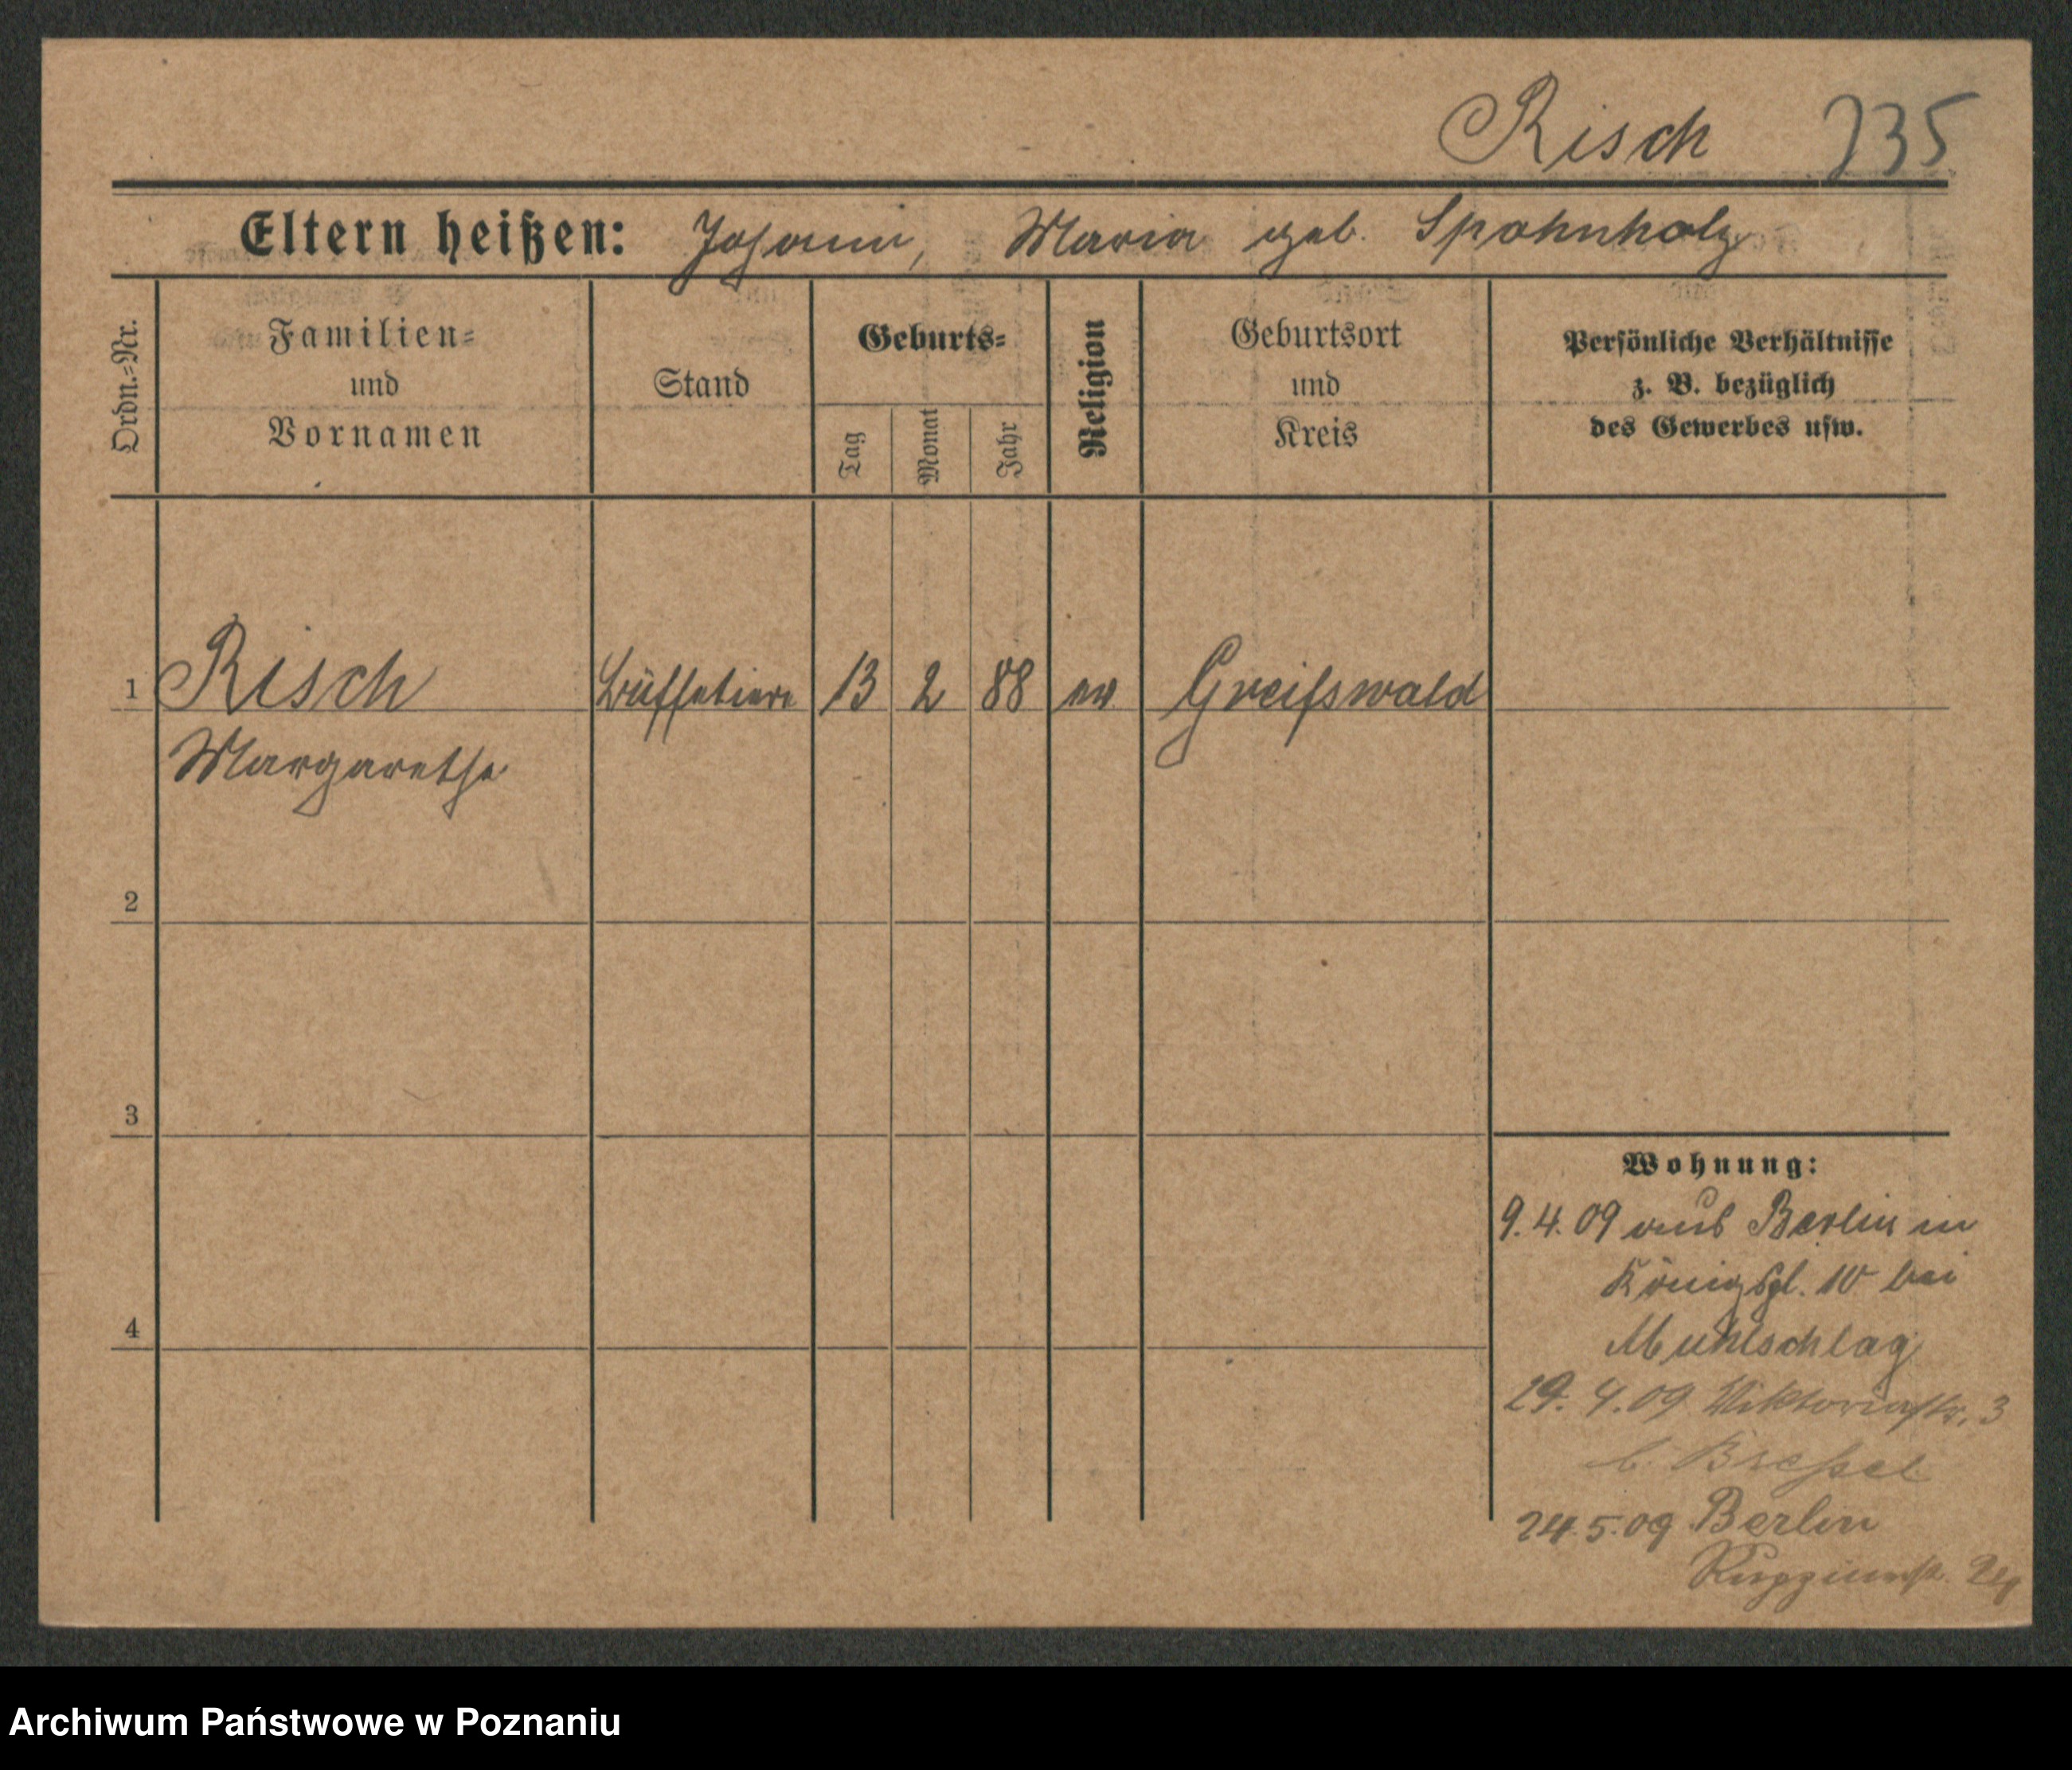 Risch 235
Eltern heißen: Johann, Maria geb. Spahnholz
Ordn.=Nr.
Familien=
und
Vornamen
Stand
Geburts=
Tag
Monat
Jahr
Religion
Geburtsort
und
Kreis
Persönliche Verhältnisse
z. B. bezüglich
des Gewerbes usw.
1 Risch Büffetiere 13 2 88 ev Greifswald
Margarethe
2
3
4
Wohnung:
9.4.09 aus Berlin in
Königspl. 10 bei
Muhlschlag
29.4.09 Viktoriastr. 3
b.
24.5.09 Berlin
Archiwum Państwowe w Poznaniu